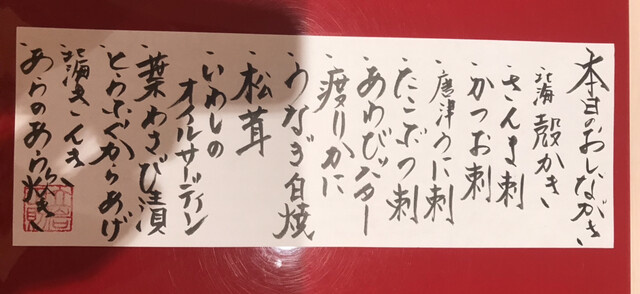 本日のおしながき
・北海 殻かき
・さんま刺
・かつお刺
・唐津うに刺
・たこぶつ刺
・あわびバター
・渡りかに
・うなぎ白焼
・松茸
・いわしの
オイルサーディン
・葉わさび漬
・とらふぐからあげ
・北海きんき
・あらのあら炊き